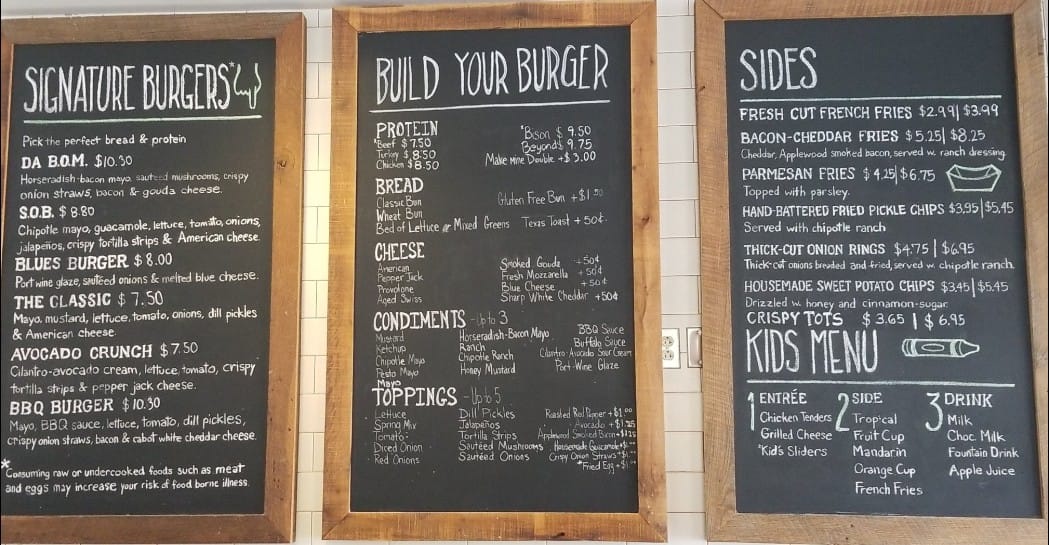 SIGNATURE BURGERS*
Pick the perfect bread & protein
DA B.O.M. $10.30
Horseradish-bacon mayo, sauteed mushrooms, crispy
onion straws, bacon & gouda cheese.
S.O.B. $8.80
Chipotle mayo, guacamole, lettuce, tomato, onions,
jalapeños, crispy tortilla strips & American cheese.
BLUES BURGER $8.00
Port wine glaze, sautéed onions & melted blue cheese.
THE CLASSIC $7.50
Mayo, mustard, lettuce, tomato, onions, dill pickles
& American cheese.
AVOCADO CRUNCH $7.50
Cilantro-avocado cream, lettuce, tomato, crispy
tortilla strips & pepper jack cheese.
BBQ BURGER $10.30
Mayo, BBQ sauce, lettuce, tomato, dill pickles,
crispy onion straws, bacon & cabot white cheddar cheese.
*Consuming raw or undercooked foods such as meat
and eggs may increase your risk of food borne illness.
BUILD YOUR BURGER
PROTEIN
*Beef $7.50
Turkey $8.50
Chicken $8.50
*Bison $9.50
Beyond $9.75
Make Mine Double +$3.00
BREAD
Classic Bun
Wheat Bun
Gluten Free Bun +$1.50
Bed of Lettuce or Mixed Greens Texas Toast +50¢
CHEESE
American
Pepper Jack
Provolone
Aged Swiss
Smoked Gouda +50¢
Fresh Mozzarella +50¢
Blue Cheese +50¢
Sharp White Cheddar +50¢
CONDIMENTS -Up to 3
Mustard
Ketchup
Chipotle Mayo
Pesto Mayo
Mayo
Horseradish-Bacon Mayo
Ranch
Chipotle Ranch
Honey Mustard
BBQ Sauce
Buffalo Sauce
Cilantro-Avocado Sour Cream
Port-Wine Glaze
TOPPINGS -Up to 5
Lettuce
Spring Mix
Tomato
Diced Onion
Red Onions
Dill Pickles
Jalapeños
Tortilla Strips
Sautéed Mushrooms
Sautéed Onions
Roasted Red Pepper +$1.00
Avocado +$1.25
Applewood Smoked Bacon +$1.25
Housemade Guacamole
Crispy Onion Straws
*Fried Egg
SIDES
FRESH CUT FRENCH FRIES $2.99 | $3.99
BACON-CHEDDAR FRIES $5.25 | $8.25
Cheddar, Applewood smoked bacon, served w. ranch dressing
PARMESAN FRIES $4.25 | $6.75
Topped with parsley.
HAND-BATTERED FRIED PICKLE CHIPS $3.95 | $5.45
Served with chipotle ranch
THICK-CUT ONION RINGS $4.75 | $6.95
Thick-cut onions breaded and fried, served w. chipotle ranch.
HOUSEMADE SWEET POTATO CHIPS $3.45 | $5.45
Drizzled w. honey and cinnamon-sugar.
CRISPY TOTS $3.65 | $6.95
KIDS MENU
1 ENTRÉE
Chicken Tenders
Grilled Cheese
*Kid's Sliders
2 SIDE
Tropical
Fruit Cup
Mandarin
Orange Cup
French Fries
3 DRINK
Milk
Choc. Milk
Fountain Drink
Apple Juice